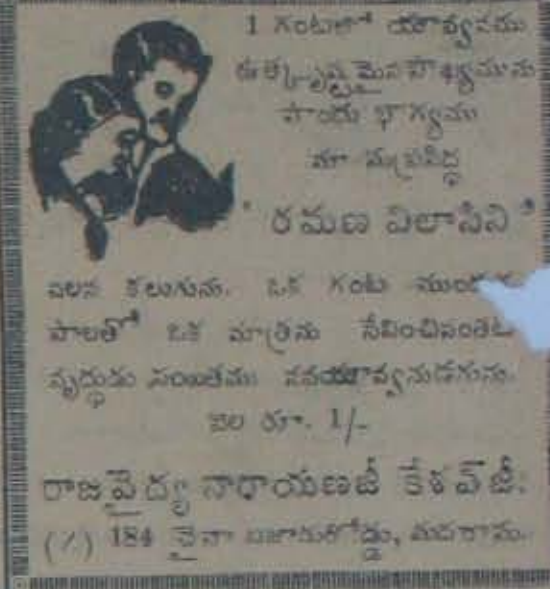 1 గంటలో యౌవ్వనము
ఉత్కృష్టమైన సౌఖ్యమును
పొందు భాగ్యము
మా సుప్రసిద్ధ
" రమణ విలాసిని "
వలన కలుగును. ఒక గంట ముందుగ
పాలతో ఒక మాత్రను సేవించినంతట
వృద్ధుడు సయితము నవయౌవ్వనుడగును.
వెల రూ. 1/-
రాజవైద్య నారాయణజీ కేశవ్‌జీ.
(%) 184 చైనా బజారురోడ్డు, మదరాసు.